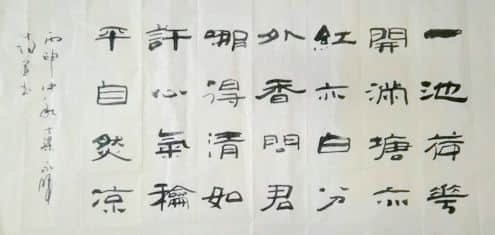 一池荷花
開滿塘亦
紅亦白分
外香問君
哪得清如
許心氣龢
平自然凉
丙申仲秋